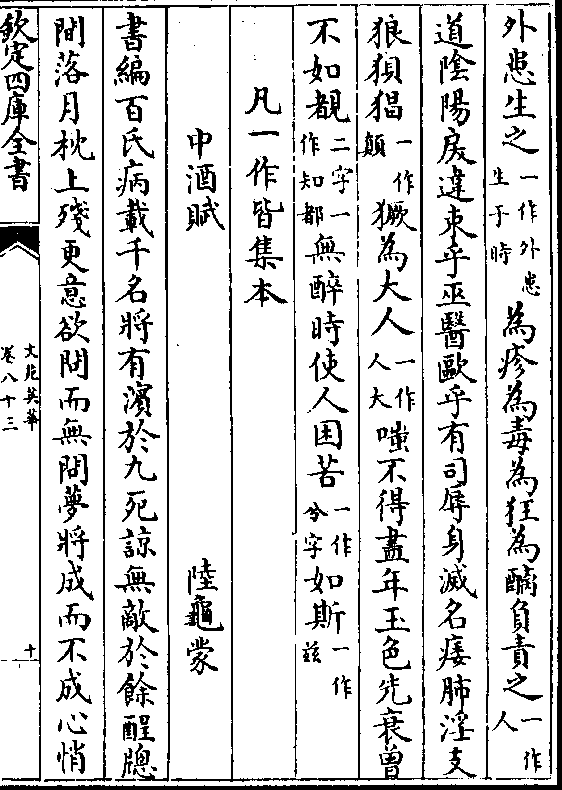 外患生之一作外患生于時為疹為毒為狂為酗負責之一作人
道陰陽戾違束乎巫醫歐乎有司辱身滅名痿肺淫支
狼狽猖一作顛獗為大人一作人大嗤不得盡年玉色先衰曾
不如覩二字一作知都無醉時使人困苦一作兮字如斯一作玆
凡一作皆集本
中酒賦 陸龜蒙
書編百氏病載千名將有濱於九死諒無敵於餘酲牎
間落月枕上殘更意欲問而無問夢將成而不成心悄
欽定四庫全書
文苑英華
卷八十三
十